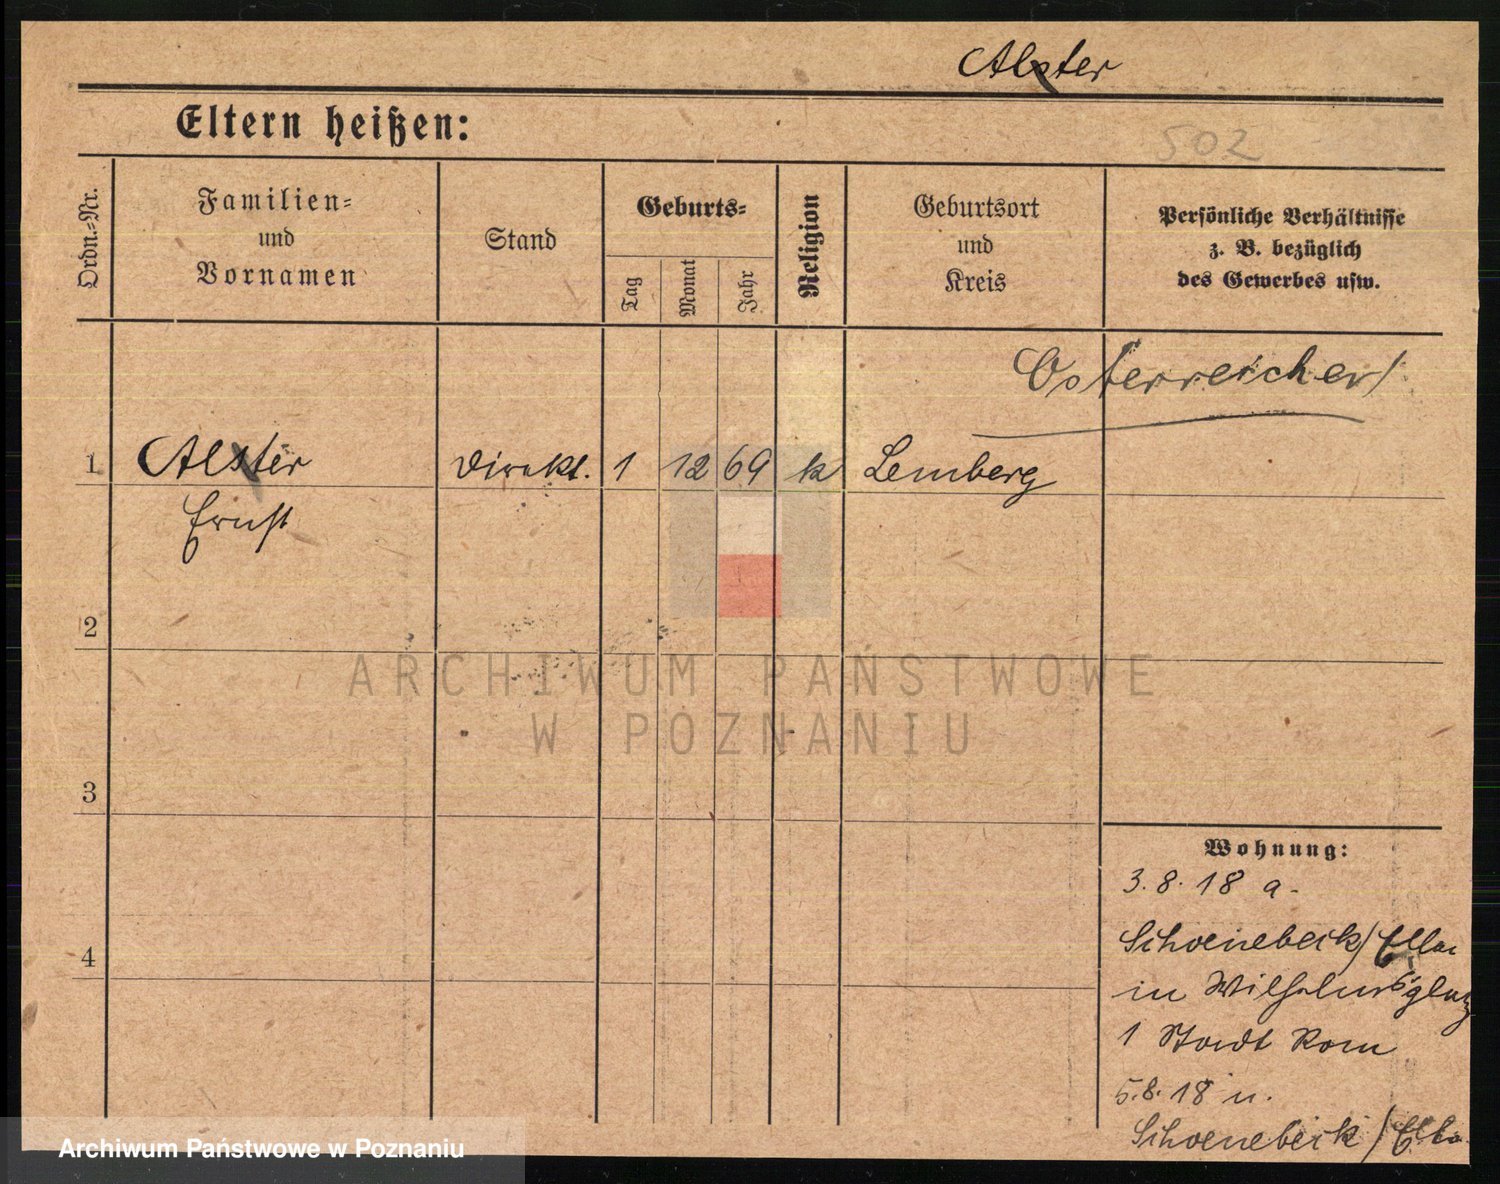 Alster
Eltern heißen:
502
Ordn.-Nr.
Familien-
und
Vornamen
Stand
Geburts-
Tag
Monat
Jahr
Religion
Geburtsort
und
Kreis
Persönliche Verhältnisse
z. B. bezüglich
des Gewerbes usw.
Österreicher
1 Alster Direkt. 1 12 69 k Lemberg
Ernst
2
ARCHIWUM PAŃSTWOWE
W POZNANIU
3
Wohnung:
3.8.18 a.
4
Schoenebeck/Elbe
in Wilhelmsplatz
1 Stadt Rom
5.8.18 n.
Schoenebeck/Elbe
Archiwum Państwowe w Poznaniu